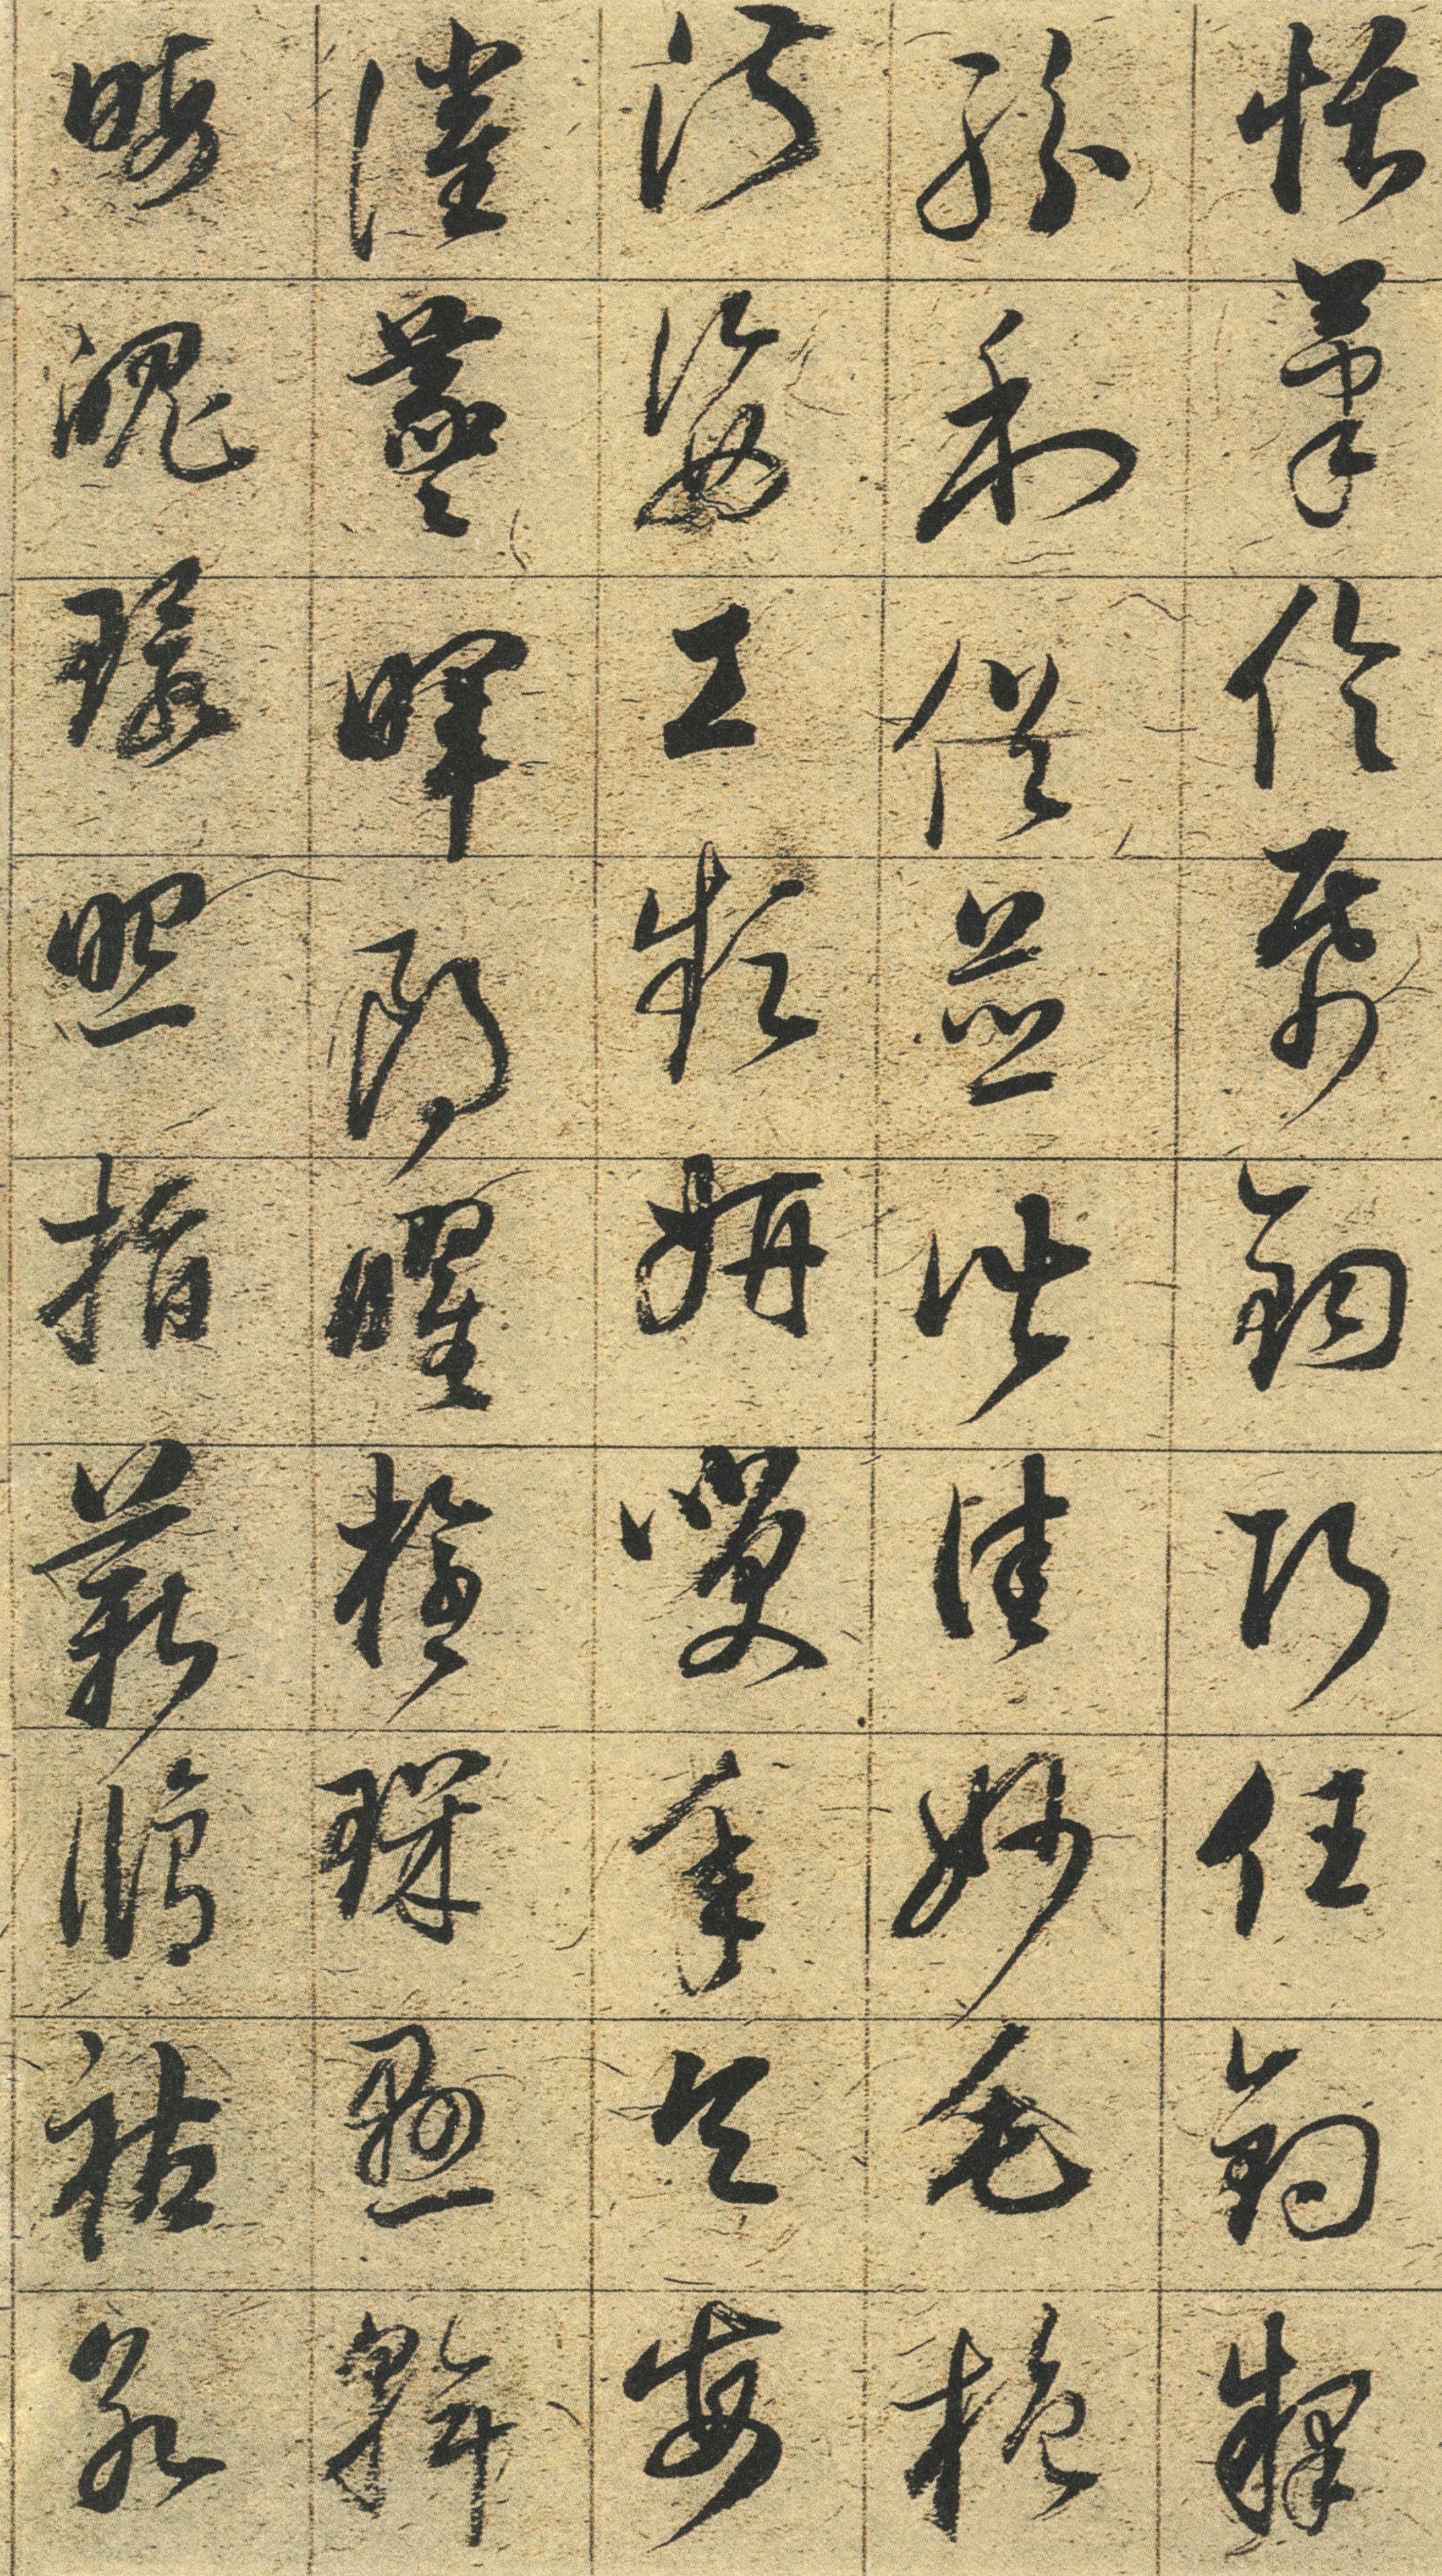 恬筆倫帋鈞巧任釣釋
紛利俗並皆佳妙毛施
淑姿工頻妍笑年矢每
催羲暉朗曜璇璣懸斡
晦魄環照指薪脩祜永